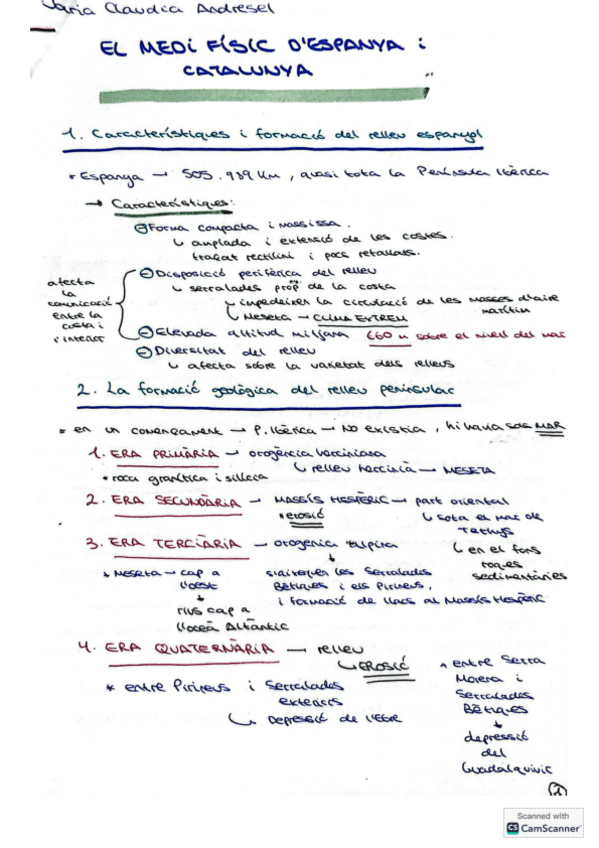 Maria Claudia Andresel
EL MEDI FÍSIC D'ESPANYA i
CATALUNYA
1. Característiques i formació del relleu espanyol
* Espanya → 505.989 Km, quasi tota la Península Ibèrica
→ Característiques:
Forma compacta i massissa.
↳ amplada i extensió de les costes.
traçat rectilini i pocs retallats.
Disposició perifèrica del relleu
↳ serralades prop de la costa
↳ impedeixen la circulació de les masses d'aire
marítim
↳ Meseta → CLIMA EXTREM
afecta
la
comunicació
entre la
costa i
l'interior
Elevada altitud mitjana 660 m sobre el nivell del mar
Diversitat del relleu
↳ afecta sobre la varietat dels relleus
2. La formació geològica del relleu peninsular
* en un començament → P. Ibèrica → NO existia, hi havia sols MAR
1. ERA PRIMÀRIA → orogència herciniana
↳ relleu hercinià → MESETA
* roca granítica i silícia
2. ERA SECUNDÀRIA → MASSÍS HESPÈRIC → part oriental
* erosió
↳ sota el mar de
Tethys
↳ en el fons
roques
sedimentàries
3. ERA TERCIÀRIA → orogènia alpina
↓ MESETA → cap a
l'oest
↓
rius cap a
l'oceà Atlàntic
les Serralades
Bètiques i els Pirineus,
i formació de llacs al Massís Hespèric
4. ERA QUATERNÀRIA → relleu
↳ EROSIÓ
* entre Pirineus i Serralades
exteriors
↳ Depressió de l'Ebre
* entre Serra
Morena i
Serralades
Bètiques
↓
depressió
del
Guadalquivir
Scanned with
CS CamScanner